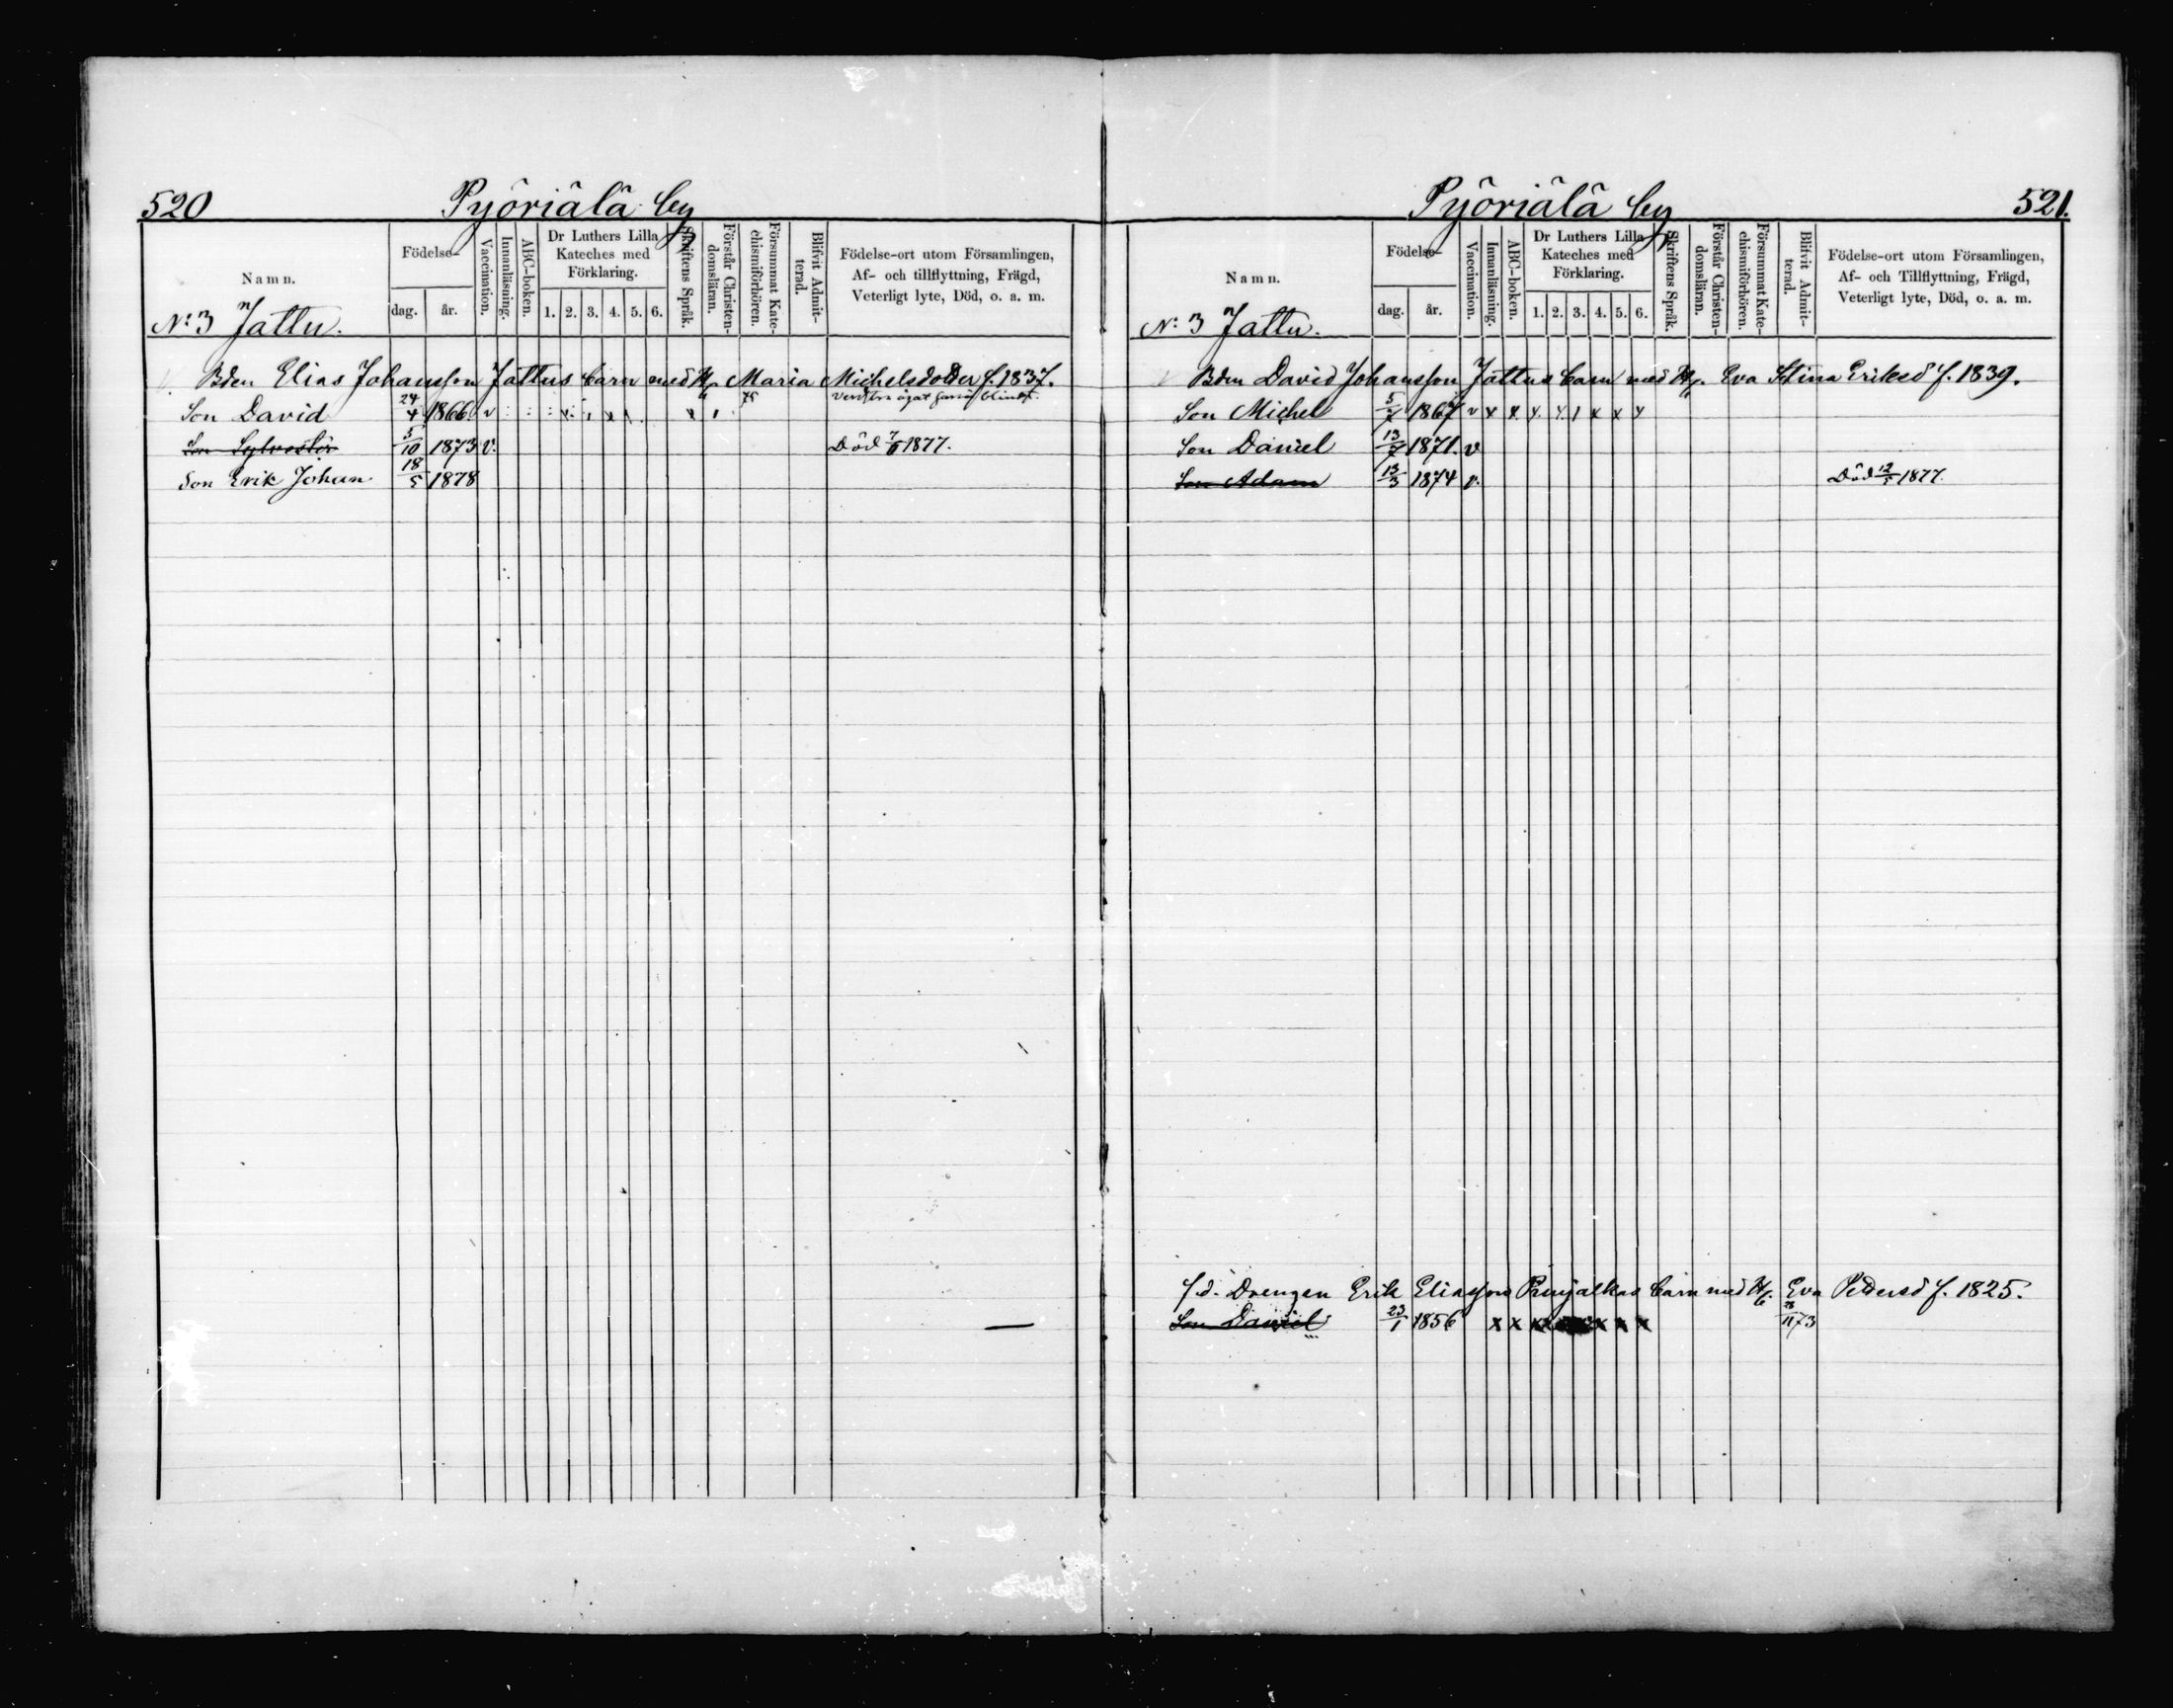 520 Pyöriälä by
Namn. Födelse- dag. år. Vaccination. Innanläsning. ABC-boken. Dr Luthers Lilla Kateches med Förklaring. 1. 2. 3. 4. 5. 6. Skriftens Språk. Förstår Christendomsläran. Försummat Katechismiförhören. Blifvit Admitterad. Födelse-ort utom Församlingen, Af- och tillflyttning, Frägd, Veterligt lyte, Död, o. a. m.
No 3 Jattu.
Bden Elias Johansson Jattus barn med H. Maria Michelsdotter f. 1837.
Son David 24/4 1866 v
Son Sylvester 5/10 1873 v. Död 1877.
Son Erik Johan 18/5 1878
Pyöriälä by 521.
Namn. Födelse- dag. år. Vaccination. Innanläsning. ABC-boken. Dr Luthers Lilla Kateches med Förklaring. 1. 2. 3. 4. 5. 6. Skriftens Språk. Förstår Christendomsläran. Försummat Katechismiförhören. Blifvit Admitterad. Födelse-ort utom Församlingen, Af- och Tillflyttning, Frägd, Veterligt lyte, Död, o. a. m.
No 3 Jattu.
Bden David Johansson Jattus barn med H. Eva Stina Eriksd f. 1839.
Son Michel 5/7 1867 v x x x x 1 x x x
Son Daniel 13/7 1871. v
Son Adam 13/3 1874 v. Död 1877.
f.d. Drengen Erik Eliasson barn med H. Eva Pedersd f. 1825.
Son Daniel 23/1 1856 x x x x x x 73